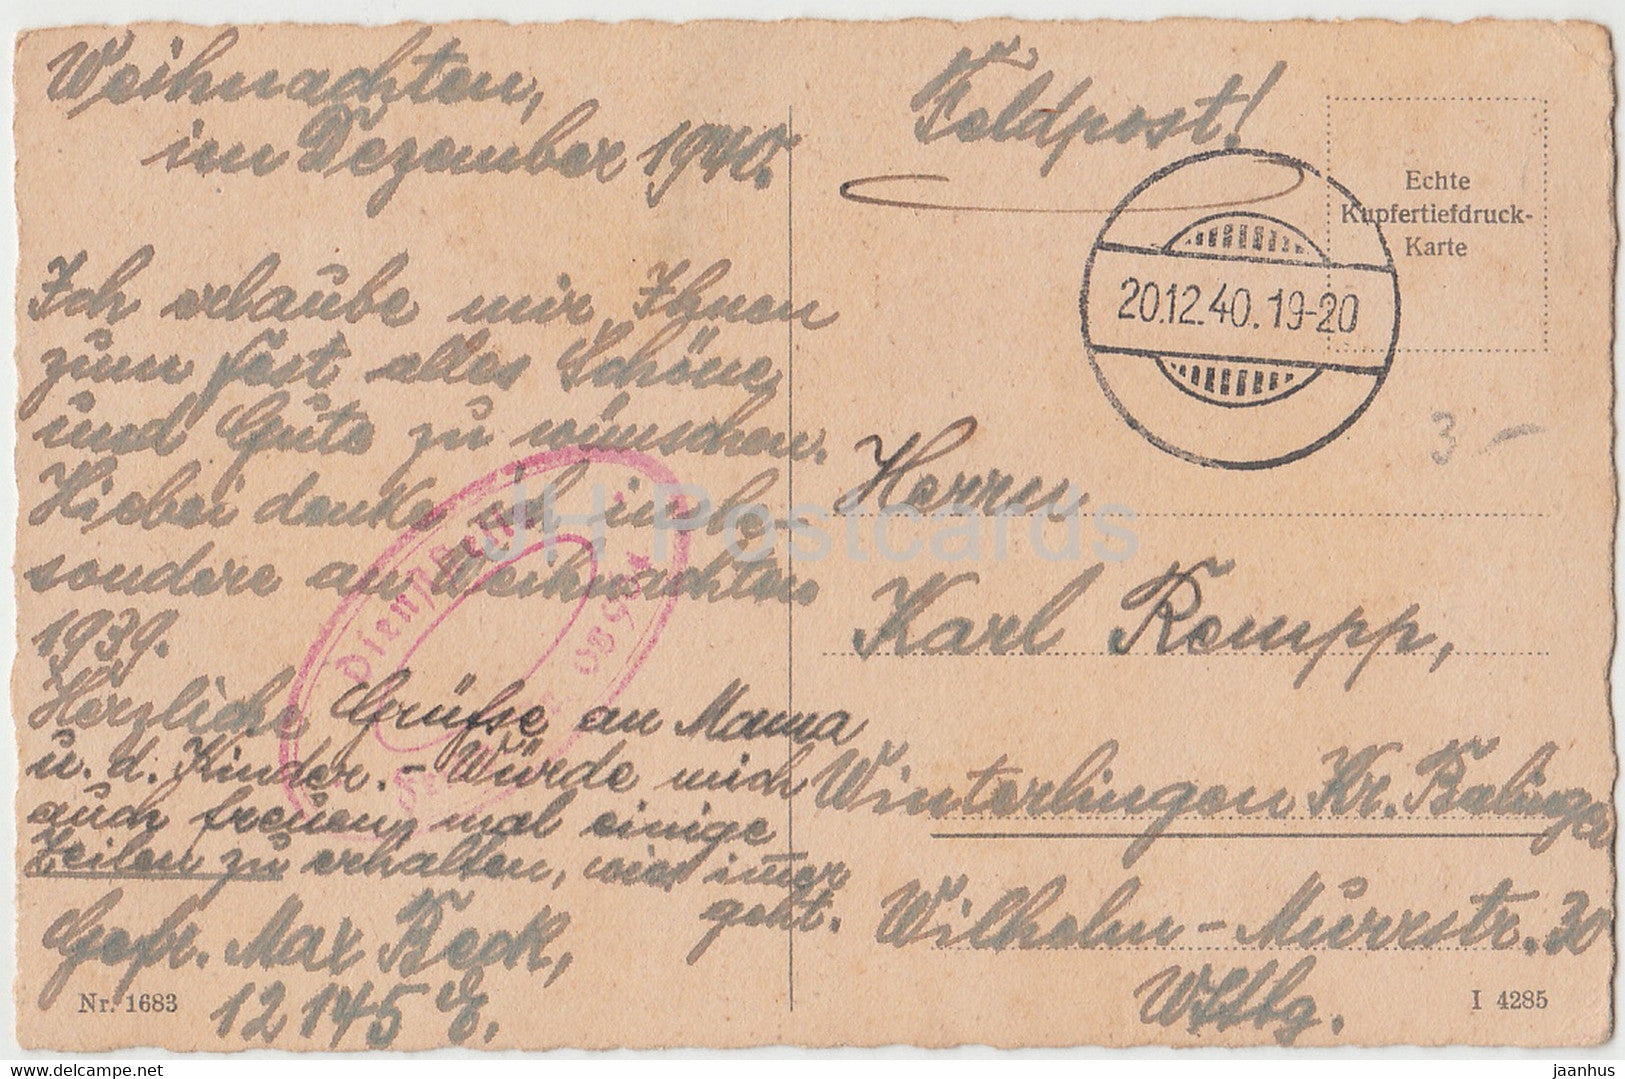 Weihnachten,
im Dezember 1940.
Ich erlaube mir, Ihnen
zum Fest alles Schöne,
und Gute zu wünschen.
Hiebei denke ich insbe-
sondere an Weihnachten
1939.
Herzliche Grüfse an Mama
u. d. Kinder. - Würde mich
auch freuen, mal einige
Zeilen zu erhalten, wies immer
geht.
Gefr. Max Beck,
12145 E.
Nr. 1683
Feldpost!
Echte
Kupfertiefdruck-
Karte
20.12.40.19-20
3 -
Herrn
Karl Rempp,
Winterlingen Kr. Balingen
Wilhelm-Murrstr. 30
Wttbg.
I 4285
Dienststelle
08956
JH Postcards
www.delcampe.net
jaanhus